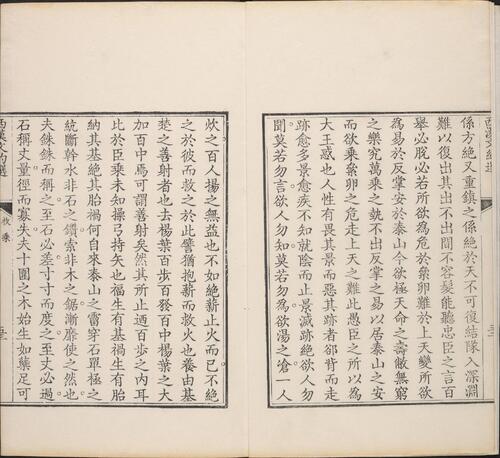 係方絕又重鎮之係絕於天不可復結隊入深淵
難以復出其出不出間不容髮能聽忠臣之言百
舉必脫必若所欲為危於絫卵難於上天變所欲
為易於反掌安於泰山今欲極天命之壽敝無窮
之樂究萬乘之埶不出反掌之易以居泰山之安
而欲乘絫卵之危走上天之難此愚臣之所以為
大王惑也人性有畏其景而惡其跡者卻背而走
跡愈多景愈疾不知就陰而止景滅跡絕欲人勿
聞莫若勿言欲人勿知莫若勿為欲湯之滄一人
炊之百人揚之無益也不如絕薪止火而已不絕
之於彼而救之於此譬猶抱薪而救火也養由基
楚之善射者也去楊葉百步百發百中楊葉之大
加百中焉可謂善射矣然其所止迺百步之內耳
比於臣乘未知操弓持矢也福生有基禍生有胎
納其基絕其胎禍何自來泰山之霤穿石單極之
統斷幹水非石之鑽索非木之鋸漸靡使之然也
夫銖銖而稱之至石必差寸寸而度之至丈必過
石稱丈量徑而寡失夫十圍之木始生如蘖足可
西漢文約選
枚乘